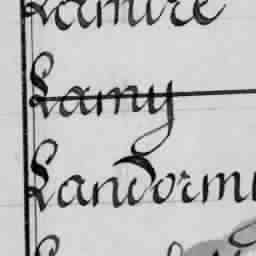 Lamire
Lamy
Landormi